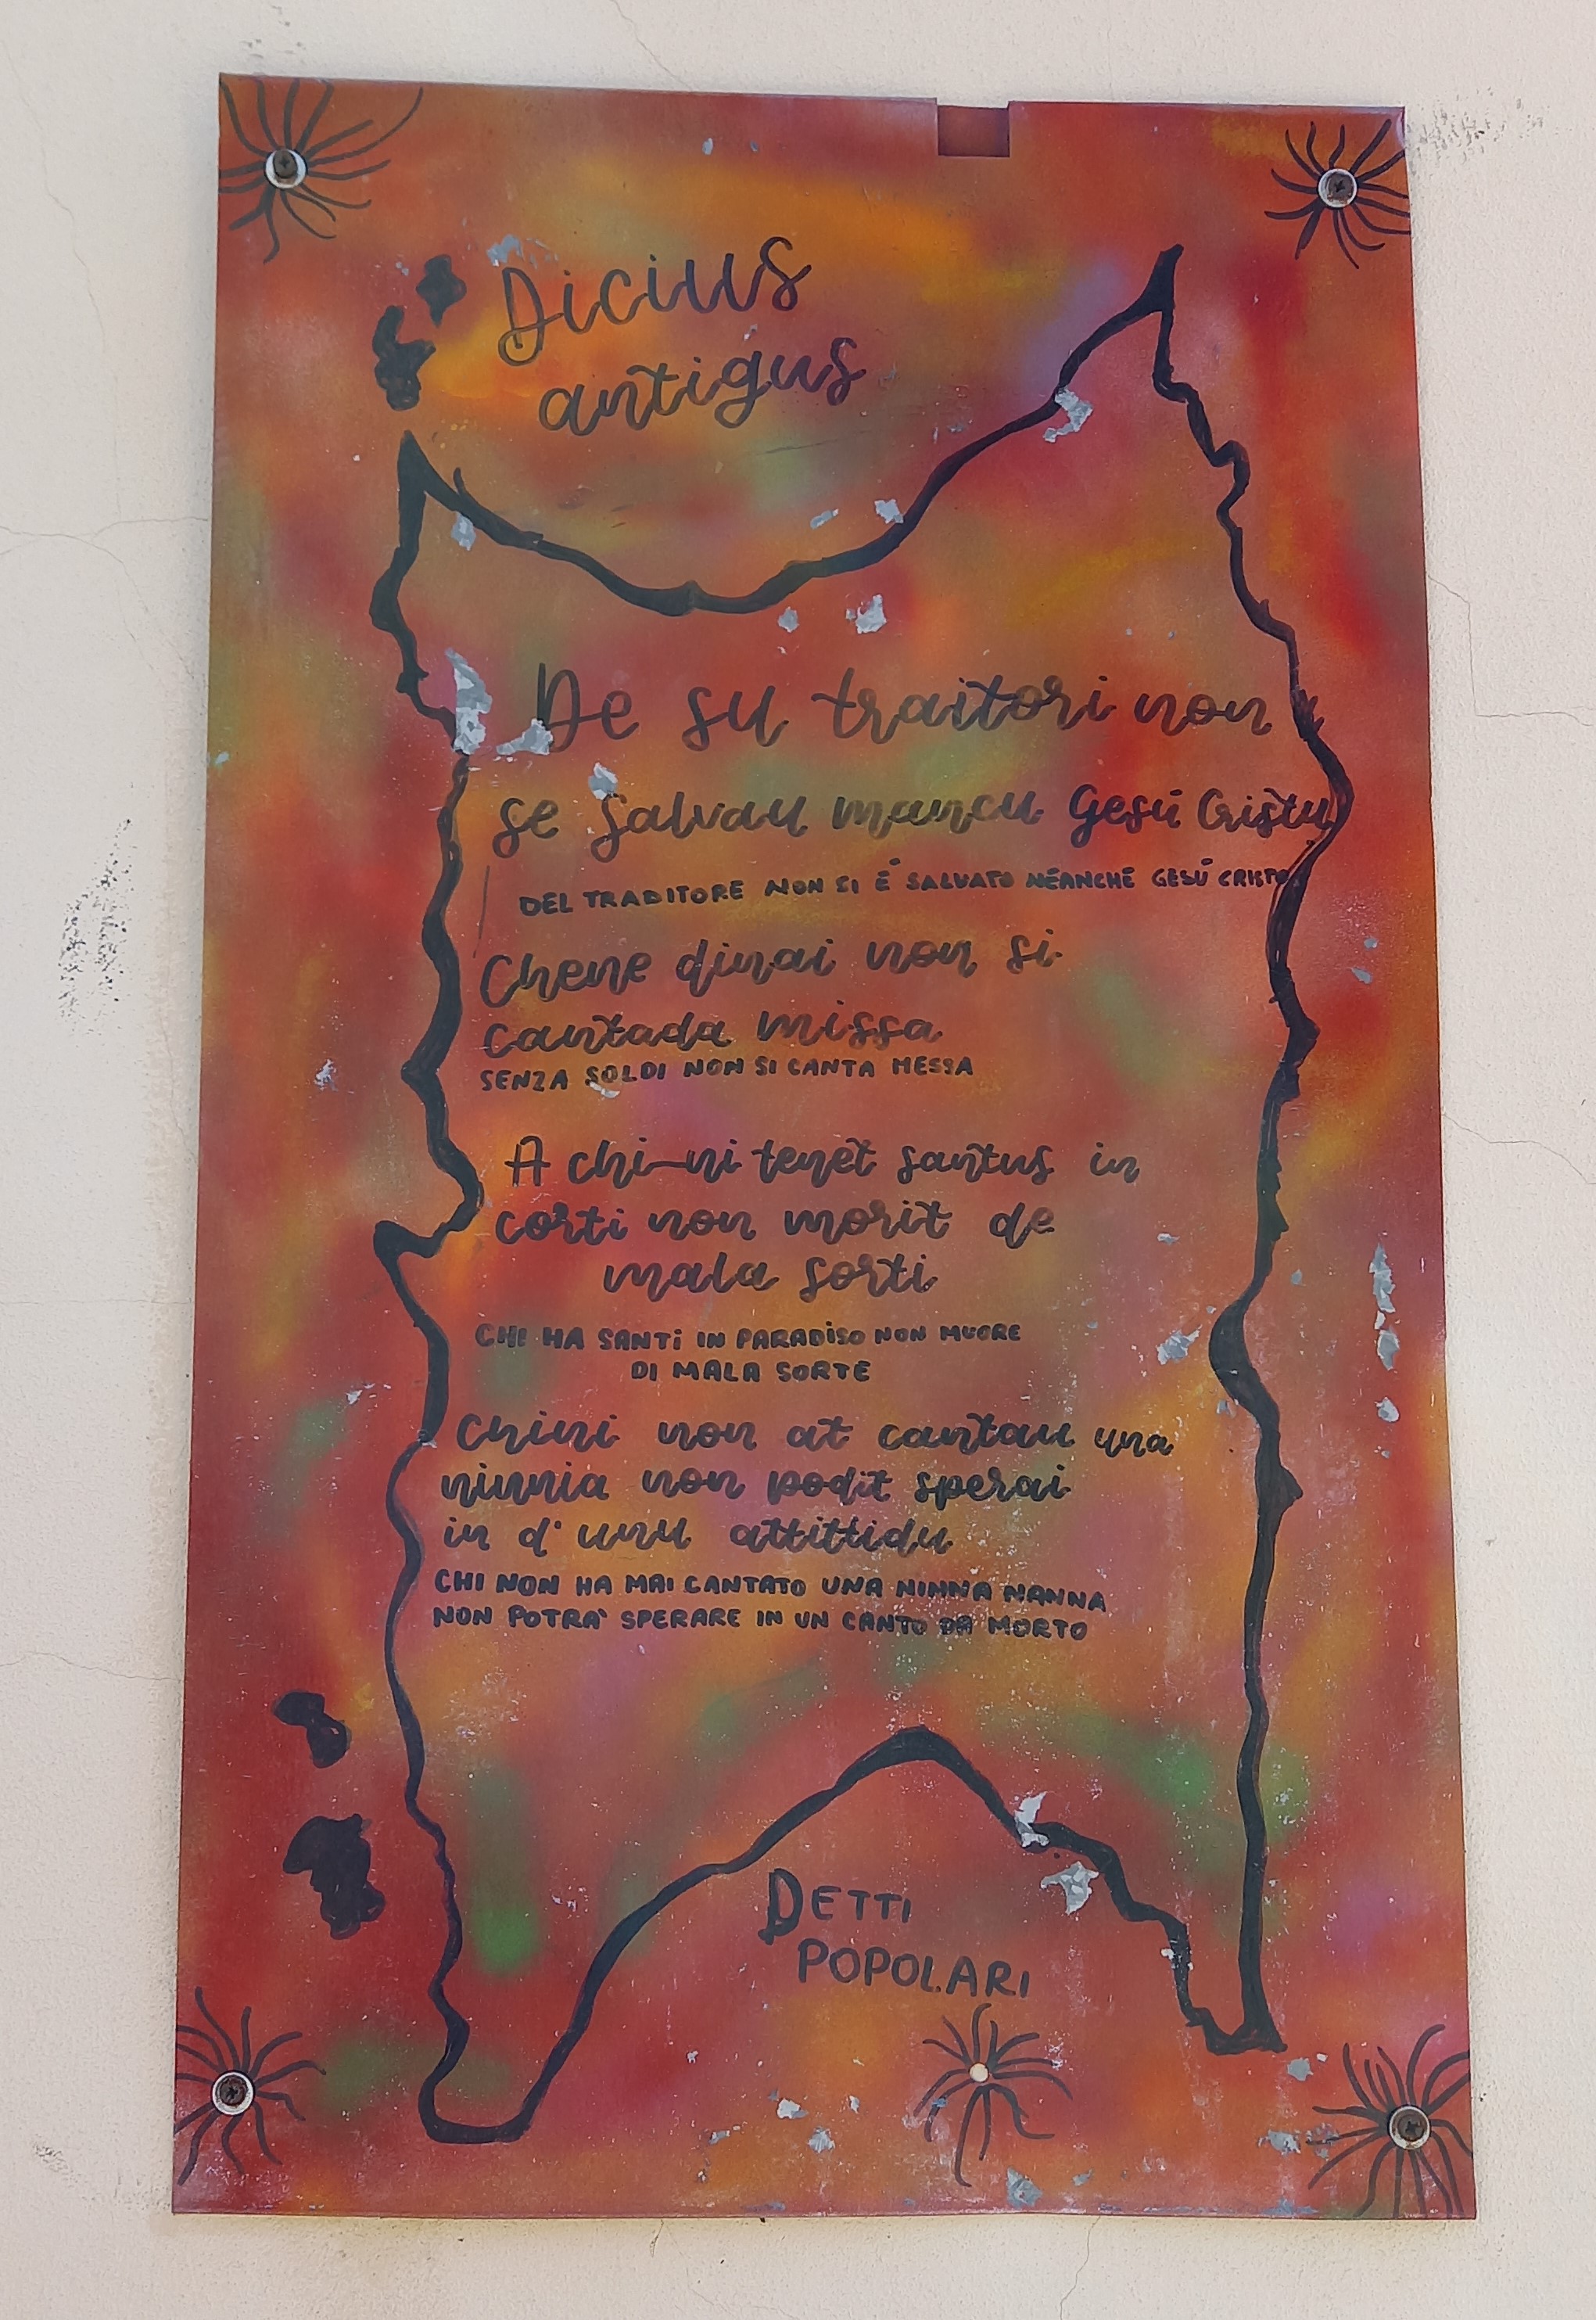 Dicius
antigus
De su traitori non
se salvau mancu Gesú Cristu
DEL TRADITORE NON SI É SALVATO NÉANCHÉ GESÚ CRISTO
Chene dinai non si
cantada missa
SENZA SOLDI NON SI CANTA MESSA
A chi-ni tenet santus in
corti non morit de
mala sorti
CHI HA SANTI IN PARADISO NON MUORE
DI MALA SORTE
Chini non at cantau una
ninnia non podit sperai
in d' unu attittidu
CHI NON HA MAI CANTATO UNA NINNA NANNA
NON POTRA' SPERARE IN UN CANTO DA MORTO
DETTI
POPOLARI